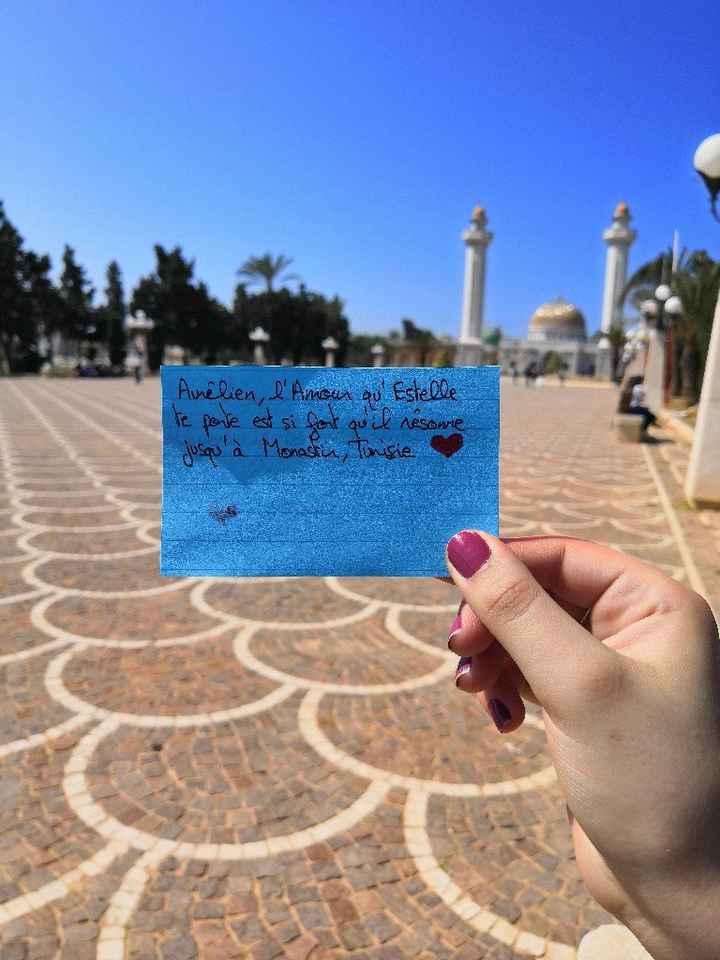 Aurélien, l'Amour qu'Estelle
te porte est si fort qu'il résonne
jusqu'à Monastir, Tunisie